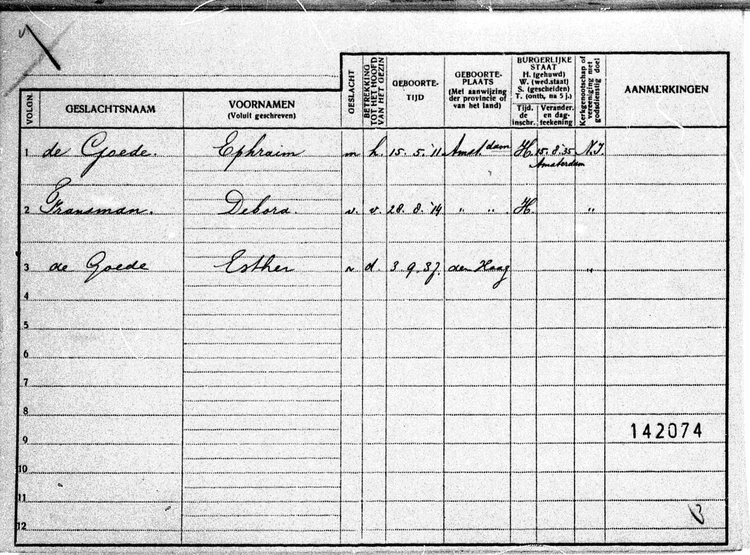 VOLGN.
GESLACHTSNAAM
VOORNAMEN
(Voluit geschreven)
GESLACHT
BETREKKING TOT HET HOOFD VAN HET GEZIN
GEBOORTE-
TIJD
GEBOORTE-
PLAATS
(Met aanwijzing
der provincie of
van het land)
BURGERLIJKE
STAAT
H. (gehuwd)
W. (wed.staat)
S. (gescheiden)
T. (ontb. na 5 j.)
Tijd.
de
inschr.
Verander.
en dag-
teekening
Kerkgenootschap of vereeniging met godsdienstig doel
AANMERKINGEN
1 de Goede. Ephraim m h. 15. 5. '11 Amst.dam H. 15. 8. '35 N.I.
Amsterdam
2 Fransman. Debora. v. v. 28. 8. '14 " " H. "
3 de Goede Esther v d. 3. 9. 37. den Haag "
4
5
6
7
8
9 142074
10
11
12